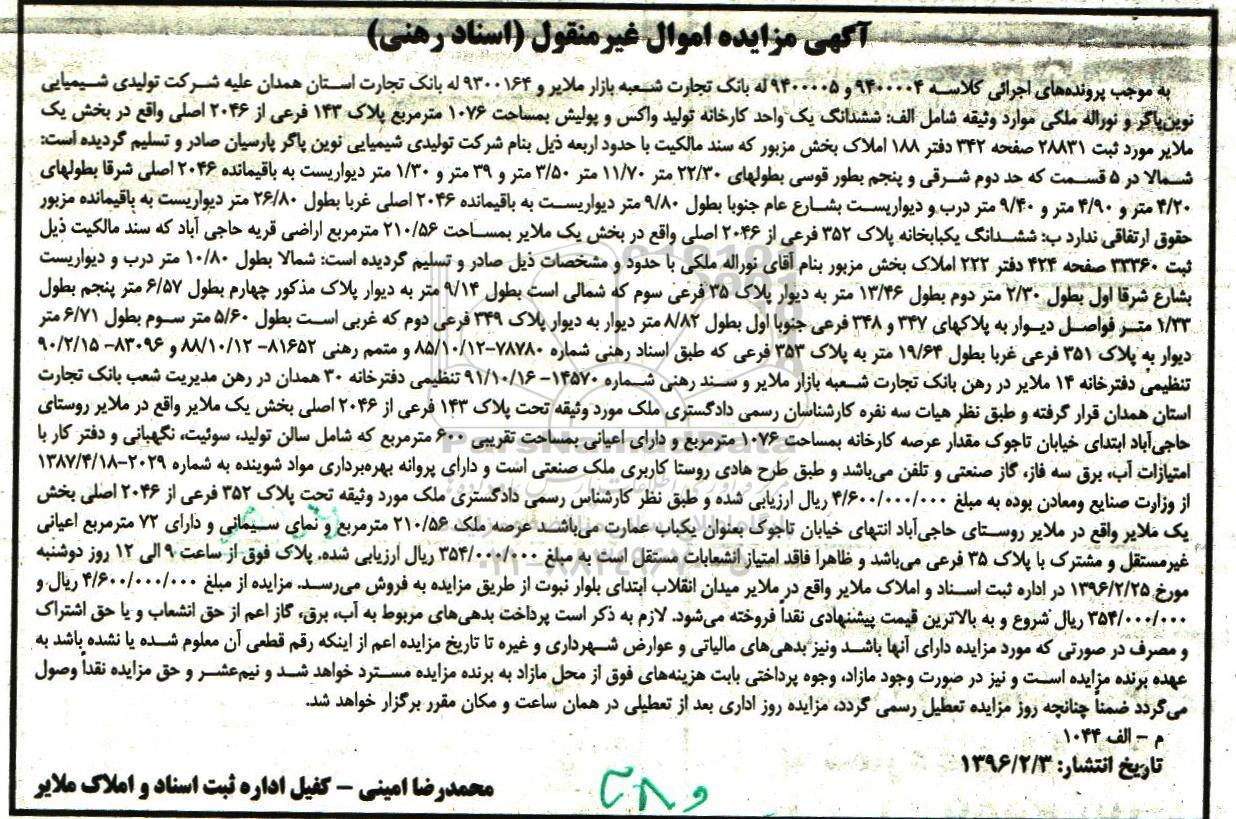 آگهی مزایده اموال غیرمنقول (اسناد رهنی)
به موجب پرونده‌های اجرائی کلاسه ۹۴۰۰۰۰۴ و ۹۴۰۰۰۰۵ له بانک تجارت شعبه بازار ملایر و ۹۳۰۰۱۶۴ له بانک تجارت استان همدان علیه شرکت تولیدی شیمیایی
نوین‌پاگر و نوراله ملکی موارد وثیقه شامل الف: ششدانگ یک واحد کارخانه تولید واکس و پولیش بمساحت ۱۰۷۶ مترمربع پلاک ۱۴۳ فرعی از ۲۰۴۶ اصلی واقع در بخش یک
ملایر مورد ثبت ۲۸۸۳۱ صفحه ۳۴۲ دفتر ۱۸۸ املاک بخش مزبور که سند مالکیت با حدود اربعه ذیل بنام شرکت تولیدی شیمیایی نوین پاگر پارسیان صادر و تسلیم گردیده است:
شمالا در ۵ قسمت که حد دوم شرقی و پنجم بطور قوسی بطولهای ۲۲/۳۰ متر ۱۱/۷۰ متر ۳/۵۰ متر و ۳۹ متر و ۱/۳۰ متر دیواریست به باقیمانده ۲۰۴۶ اصلی شرقا بطولهای
۴/۲۰ متر و ۴/۹۰ متر و ۹/۴۰ متر درب و دیواریست بشارع عام جنوبا بطول ۹/۸۰ متر دیواریست به باقیمانده ۲۰۴۶ اصلی غربا بطول ۲۶/۸۰ متر دیواریست به باقیمانده مزبور
حقوق ارتفاقی ندارد ب: ششدانگ یکبابخانه پلاک ۳۵۲ فرعی از ۲۰۴۶ اصلی واقع در بخش یک ملایر بمساحت ۲۱۰/۵۶ مترمربع اراضی قریه حاجی آباد که سند مالکیت ذیل
ثبت ۳۳۳۶۰ صفحه ۴۲۴ دفتر ۲۲۲ املاک بخش مزبور بنام آقای نوراله ملکی با حدود و مشخصات ذیل صادر و تسلیم گردیده است: شمالا بطول ۱۰/۸۰ متر درب و دیواریست
بشارع شرقا اول بطول ۲/۳۰ متر دوم بطول ۱۳/۴۶ متر به دیوار پلاک ۳۵ فرعی سوم که شمالی است بطول ۹/۱۴ متر به دیوار پلاک مذکور چهارم بطول ۶/۵۷ متر پنجم بطول
۱/۳۳ متر فواصل دیوار به پلاکهای ۳۴۷ و ۳۴۸ فرعی جنوبا اول بطول ۸/۸۲ متر دیوار به دیوار پلاک ۳۴۹ فرعی دوم که غربی است بطول ۵/۶۰ متر سوم بطول ۶/۷۱ متر
دیوار به پلاک ۳۵۱ فرعی غربا بطول ۱۹/۶۴ متر به پلاک ۳۵۳ فرعی که طبق اسناد رهنی شماره ۷۸۷۸۰-۸۵/۱۰/۱۲ و متمم رهنی ۸۱۶۵۲- ۸۸/۱۰/۱۲ و ۸۳۰۹۶- ۹۰/۲/۱۵
تنظیمی دفترخانه ۱۴ ملایر در رهن بانک تجارت شعبه بازار ملایر و سند رهنی شماره ۱۴۵۷۰- ۹۱/۱۰/۱۶ تنظیمی دفترخانه ۳۰ همدان در رهن مدیریت شعب بانک تجارت
استان همدان قرار گرفته و طبق نظر هیات سه نفره کارشناسان رسمی دادگستری ملک مورد وثیقه تحت پلاک ۱۴۳ فرعی از ۲۰۴۶ اصلی بخش یک ملایر واقع در ملایر روستای
حاجی‌آباد ابتدای خیابان تاجوک مقدار عرصه کارخانه بمساحت ۱۰۷۶ مترمربع و دارای اعیانی بمساحت تقریبی ۶۰۰ مترمربع که شامل سالن تولید، سوئیت، نگهبانی و دفتر کار با
امتیازات آب، برق سه فاز، گاز صنعتی و تلفن می‌باشد و طبق طرح هادی روستا کاربری ملک صنعتی است و دارای پروانه بهره‌برداری مواد شوینده به شماره ۲۰۲۹-۱۳۸۷/۴/۱۸
از وزارت صنایع ومعادن بوده به مبلغ ۴/۶۰۰/۰۰۰/۰۰۰ ریال ارزیابی شده و طبق نظر کارشناس رسمی دادگستری ملک مورد وثیقه تحت پلاک ۳۵۲ فرعی از ۲۰۴۶ اصلی بخش
یک ملایر واقع در ملایر روستای حاجی‌آباد انتهای خیابان تاجوک بعنوان یکباب عمارت می‌باشد عرصه ملک ۲۱۰/۵۶ مترمربع و نمای سیمانی و دارای ۷۲ مترمربع اعیانی
غیرمستقل و مشترک با پلاک ۳۵ فرعی می‌باشد و ظاهرا فاقد امتیاز انشعابات مستقل است به مبلغ ۳۵۴/۰۰۰/۰۰۰ ریال ارزیابی شده. پلاک فوق از ساعت ۹ الی ۱۲ روز دوشنبه
مورخ ۱۳۹۶/۲/۲۵ در اداره ثبت اسناد و املاک ملایر واقع در ملایر میدان انقلاب ابتدای بلوار نبوت از طریق مزایده به فروش می‌رسد. مزایده از مبلغ ۴/۶۰۰/۰۰۰/۰۰۰ ریال و
۳۵۴/۰۰۰/۰۰۰ ریال شروع و به بالاترین قیمت پیشنهادی نقداً فروخته می‌شود. لازم به ذکر است پرداخت بدهی‌های مربوط به آب، برق، گاز اعم از حق انشعاب و یا حق اشتراک
و مصرف در صورتی که مورد مزایده دارای آنها باشد ونیز بدهی‌های مالیاتی و عوارض شهرداری و غیره تا تاریخ مزایده اعم از اینکه رقم قطعی آن معلوم شده یا نشده باشد به
عهده برنده مزایده است و نیز در صورت وجود مازاد، وجوه پرداختی بابت هزینه‌های فوق از محل مازاد به برنده مزایده مسترد خواهد شد و نیم‌عشر و حق مزایده نقداً وصول
می‌گردد ضمناً چنانچه روز مزایده تعطیل رسمی گردد، مزایده روز اداری بعد از تعطیلی در همان ساعت و مکان مقرر برگزار خواهد شد.
م - الف ۱۰۴۴
تاریخ انتشار: ۱۳۹۶/۲/۳
محمدرضا امینی - کفیل اداره ثبت اسناد و املاک ملایر
ParsNamadData